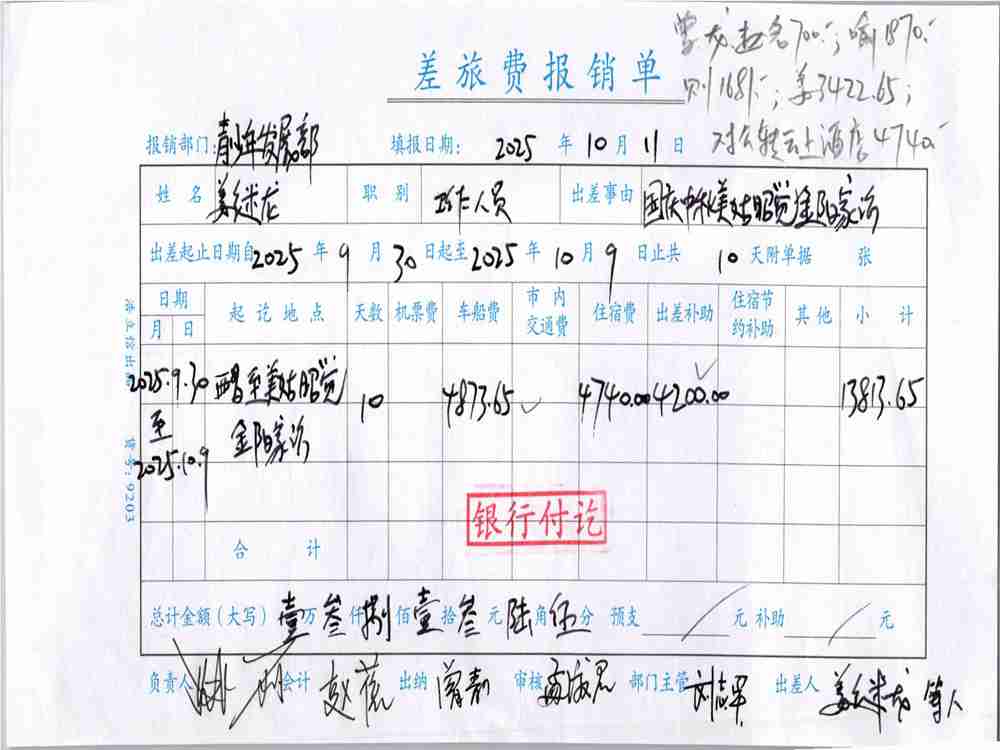 700.-; 喻1870.-
则1681.-; 姜3422.65;
对公转云上酒店4740.-
差旅费报销单
报销部门: 青少年发展部 填报日期: 2025 年 10 月 11 日
姓名 姜米龙 职别 工作人员 出差事由 国庆中秋美姑昭觉金阳家访
出差起止日期自 2025 年 9 月 30 日起至 2025 年 10 月 9 日止共 10 天附单据 张
日期 起讫地点 天数 机票费 车船费 市内交通费 住宿费 出差补助 住宿节约补助 其他 小计
月 日
2025.9.30 西昌至美姑昭觉 10 4873.65 4740.00 4200.00 13813.65
至 金阳家访
2025.10.9
银行付讫
合计
总计金额(大写) 壹万叁仟捌佰壹拾叁元陆角伍分 预支 元 补助 元
负责人 会计 赵 出纳 曾嘉 审核 部门主管 刘志军 出差人 姜米龙 等人
货号: 9203